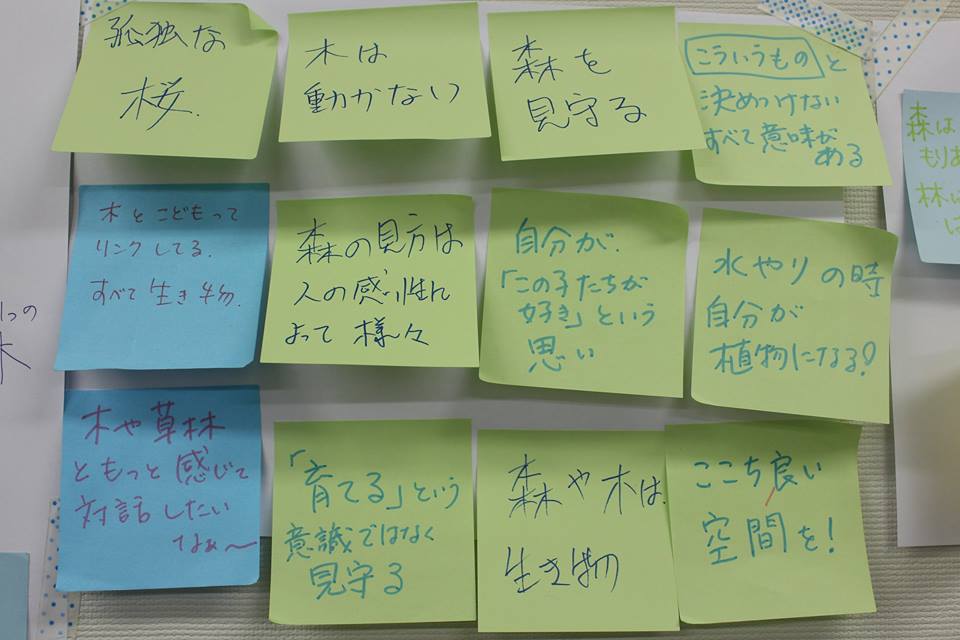 孤独な
桜.
木は
動かない
森を
見守る
こういうものと
決めつけない
すべて意味が
ある
森は
もりあ
林は
は
木とこどもって
リンクしてる.
すべて生き物.
森の見方は
人の感性に
よって様々
自分が.
「この子たちが
好き」という
思い
水やりの時
自分が
植物になる!
1つの
木
木や草林
ともっと感じて
対話したい
なぁ〜
「育てる」という
意識ではなく
見守る
森や木は.
生き物
ここち良い
空間を!